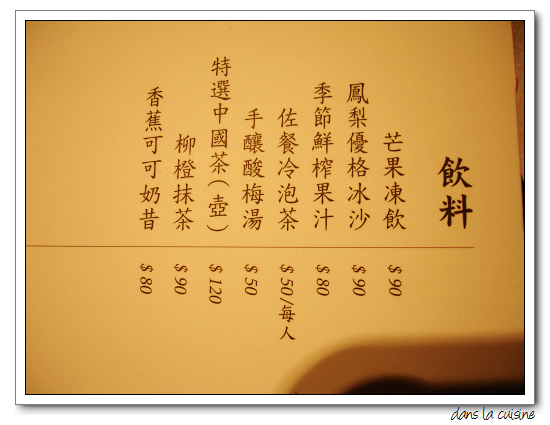 飲料
芒果凍飲 $90
鳳梨優格冰沙 $90
季節鮮榨果汁 $80
佐餐冷泡茶 $50/每人
手釀酸梅湯 $50
特選中國茶(壺) $120
柳橙抹茶 $90
香蕉可可奶昔 $80
dans la cuisine